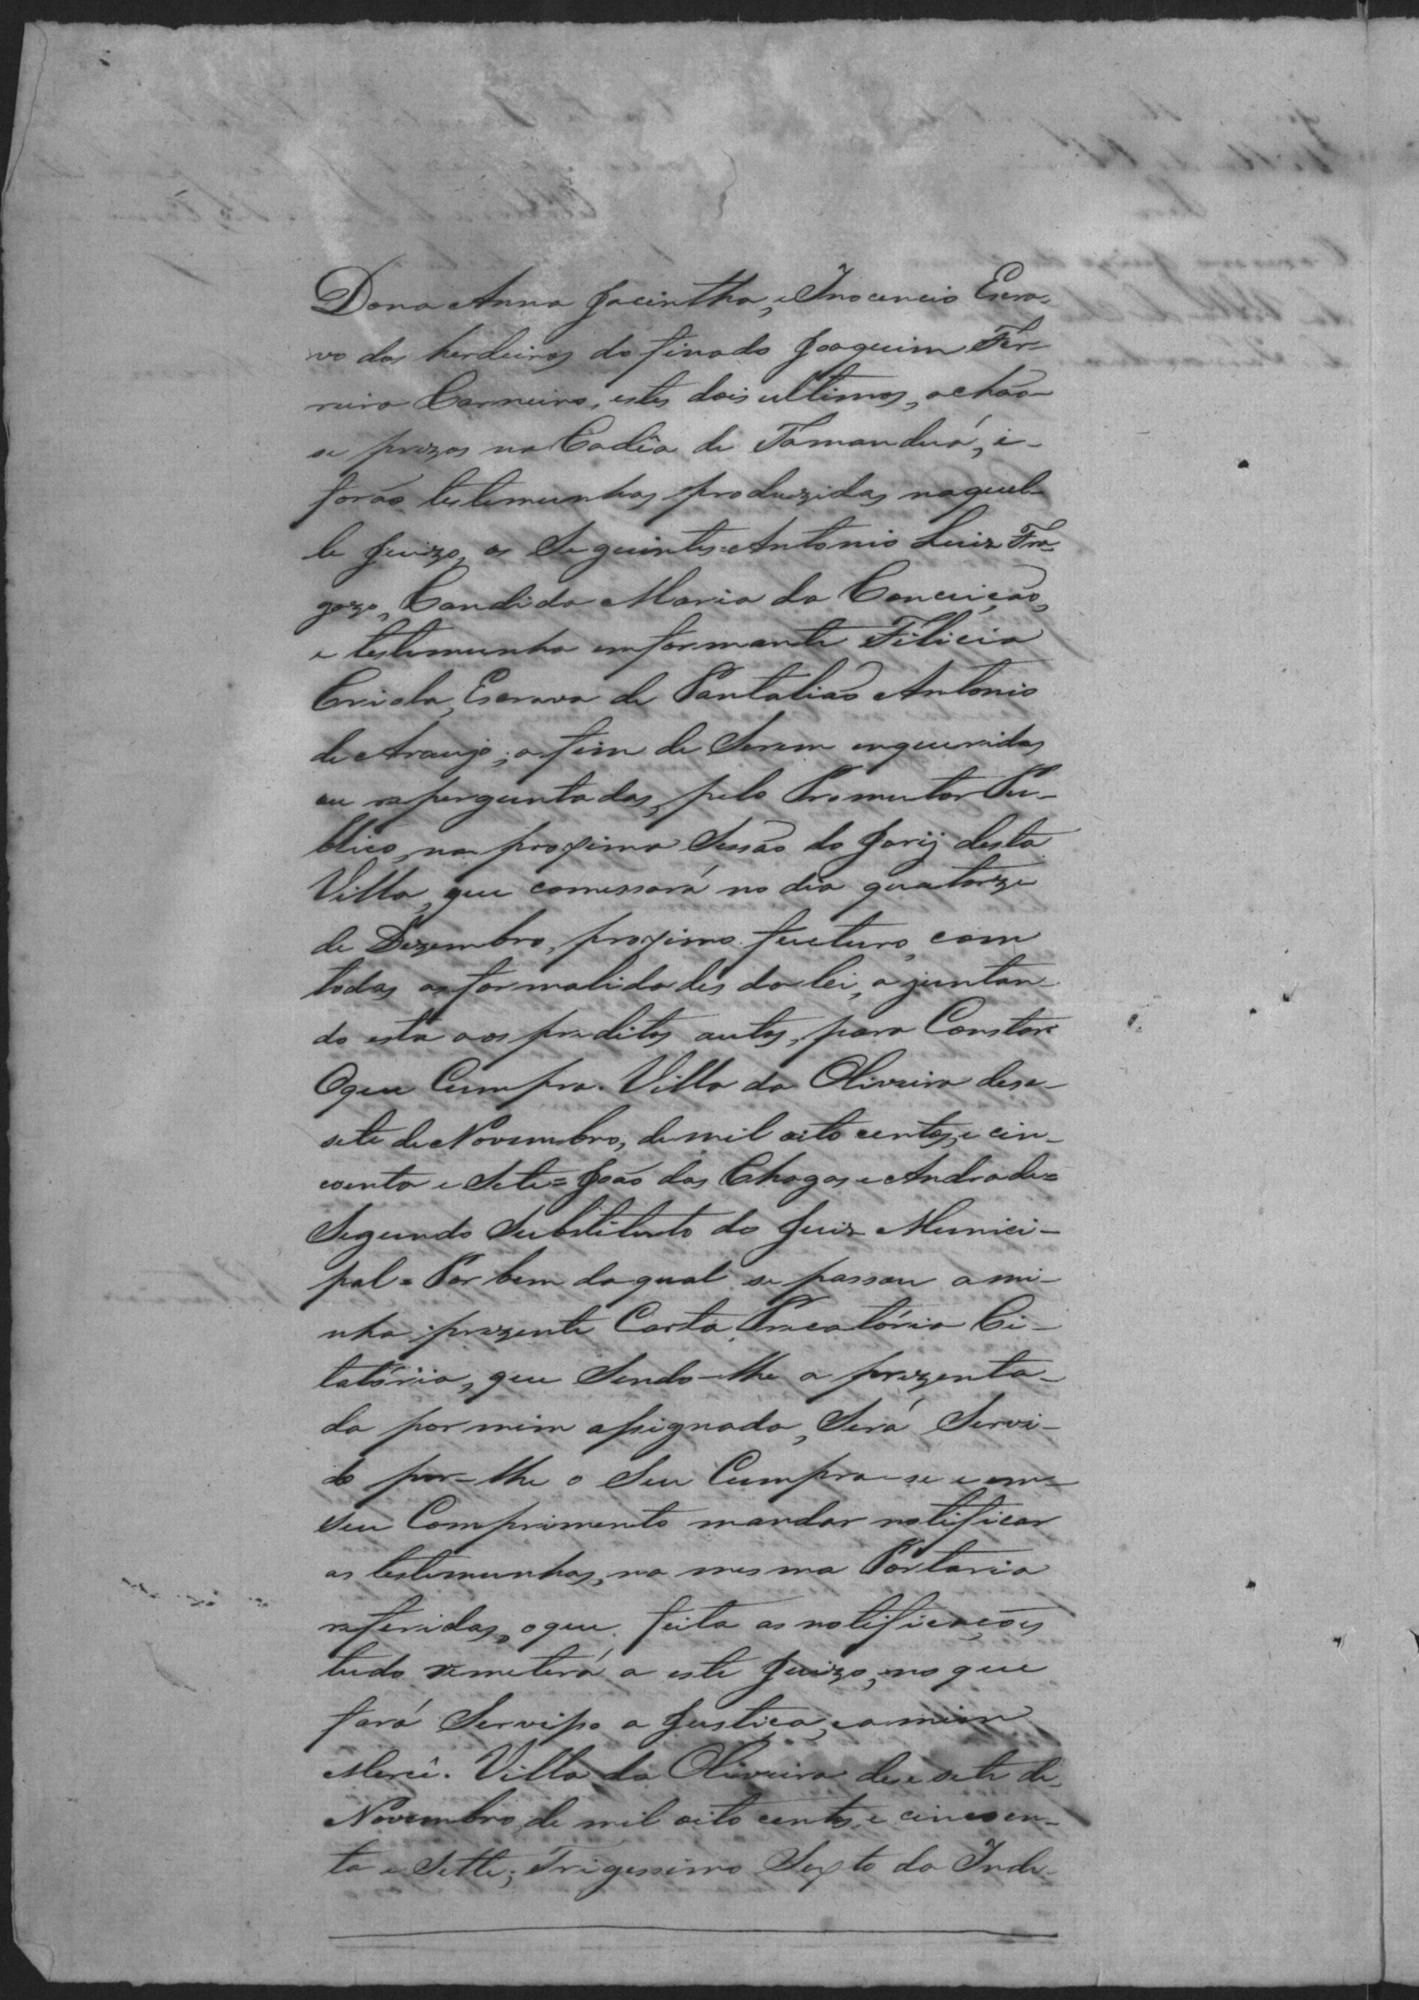 Dona Anna Jacintha, e Inocencio Escra-
vo dos herdeiros do finado Joaquim Fer-
reira Carneiro, estes dois ultimos, achão-
se prezos na Cadêa de Tamanduá, i-
forão testemunhas produzidas naquel-
le Juizo, os Seguintes = Antonio Luiz Fra-
gozo, Candida Maria da Conceição,
e testemunha enformante Filicia
Criola, Escrava de Pantalião Antonio
de Araujo; afim de Serem enqueridas
ou reperguntadas, pelo Promutor Pu-
blico, na proxima Sessão do Jurij desta
Villa, que comessará no dia quatorze
de Dezembro, proximo fucturo, com
todas as formalidades da lei, ajuntan-
do esta aos preditos autos, para Constar
O que Cumpra. Villa da Oliveira dese-
sete de Novembro, de mil oito centos, e cin-
coenta e Sete = João das Chagas e Andrade =
Segundo Substituto do Juiz Munici-
pal = Por bem da qual se passou a mi-
nha prezente Carta Precatória Ci-
tatória, que Sendo-lhe a prezenta-
da por mim assignada, Será Servi-
do por-lhe o Seu Cumpra-se e em
seu Comprimento mandar notificar
as testemunhas, na mesma Portaria
referidas, o que feita as notificações
tudo remeterá a este Juizo, no que
fará Servisso a Justiça, e a mim
Mercê. Villa da Oliveira dese sete de
Novembro, de mil oito centos, e cincoen-
ta e Sette; Trigessimo Sexto da Inde-